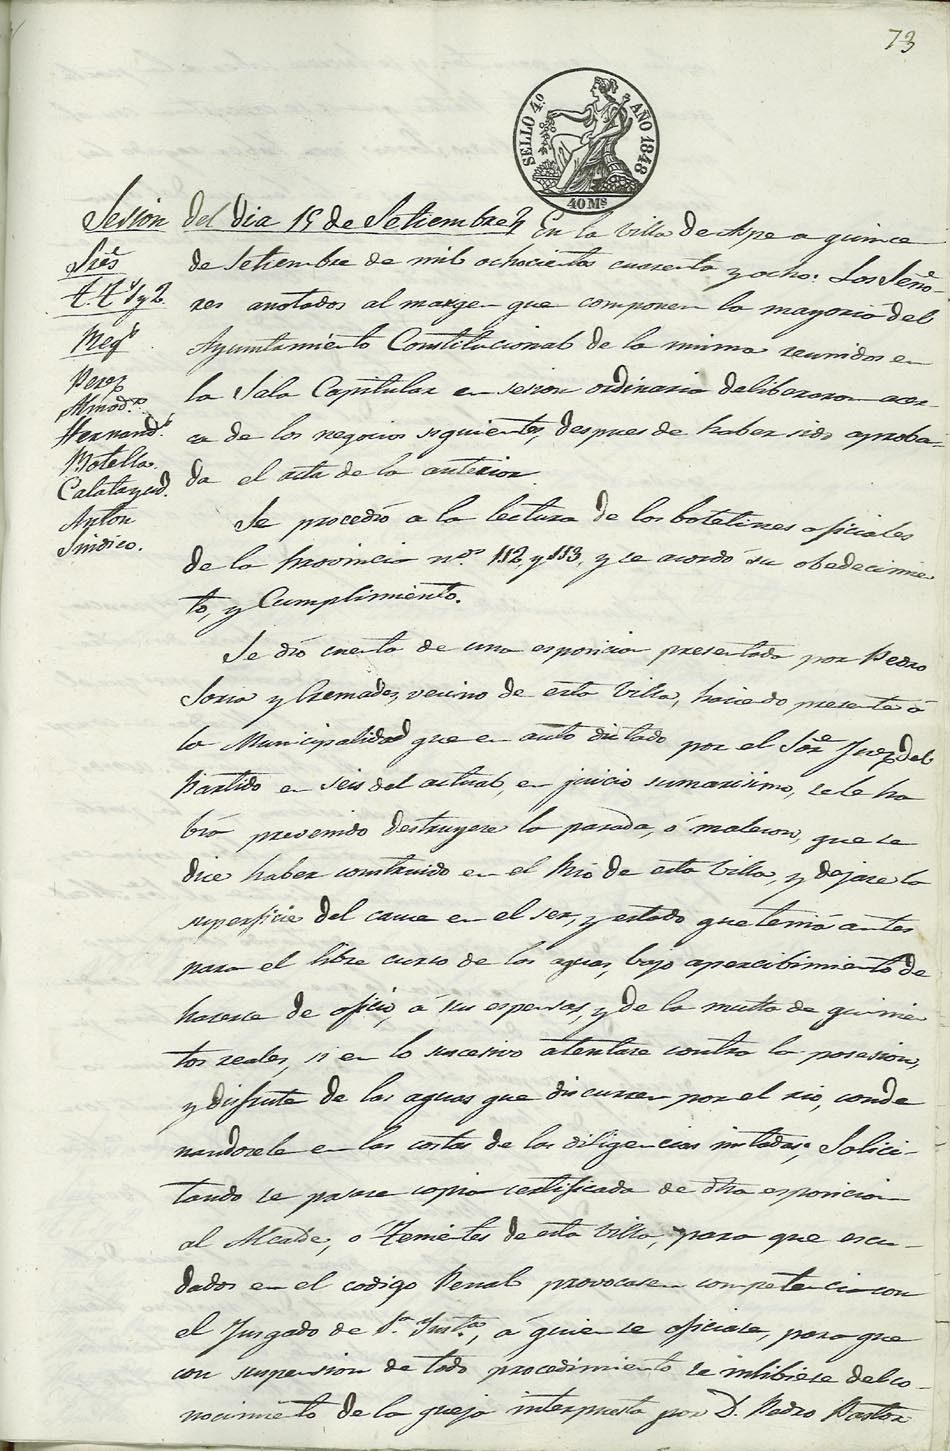 73
SELLO 4.º AÑO 1848
40 Ms
Sesion del dia 15 de Setiembre En la Villa de Aspe a quince
Srēs
de Setiembre de mil ochocientos cuarenta y ocho: Los Seño-
T.Tˢ 1 y 2.
res anotados al margen que componen la mayoria del
Regˢ
Ayuntamiento Constitucional de la misma reunidos en
Perez
la Sala Capitular en sesion ordinaria deliberaron acer-
Almodr.
Hernandz
ca de los negocios siguientes, despues de haber sido aproba-
Botella.
da el acta de la anterior.
Calatayud.
Anton
Se procedió a la lectura de los boletines oficiales
Sindico.
de la Provincia nos. 112, y 113, y se acordó su obedecimien
to, y Cumplimiento.
Se dió cuenta de una esposicion presentada por Pedro
Soria y Cremades, vecino de esta Villa, haciendo presente á
la Municipalidad que en auto dictado por el Sōr Juez del
Partido en seis del actual, en juicio sumarisimo, se le ha
bia prevenido destruyere la parada, ó malecon, que se
dice haber construido en el Rio de esta Villa, y dejase la
superficie del cauce en el ser, y estado que tenia antes
para el libre curso de las aguas, bajo apercibimiento de
hacerse de oficio, á sus espensas, y de la multa de quinien
tos reales, si en lo sucesivo atentare contra la posesion,
y disfrute de las aguas que discurren por el rio, conde
nandosele en las costas de las diligencias instadas; Solici-
tando se pasase copia certificada de dha esposicion
al Alcalde, o Tenientes de esta Villa, para que escu-
dados en el codigo Penal provocasen competencia con
el Juzgado de 1.ª Instª, á quien se oficiase, para que
con suspension de todo procedimiento se inhibiese del co-
nocimiento de la queja interpuesta por D. Pedro Pastor